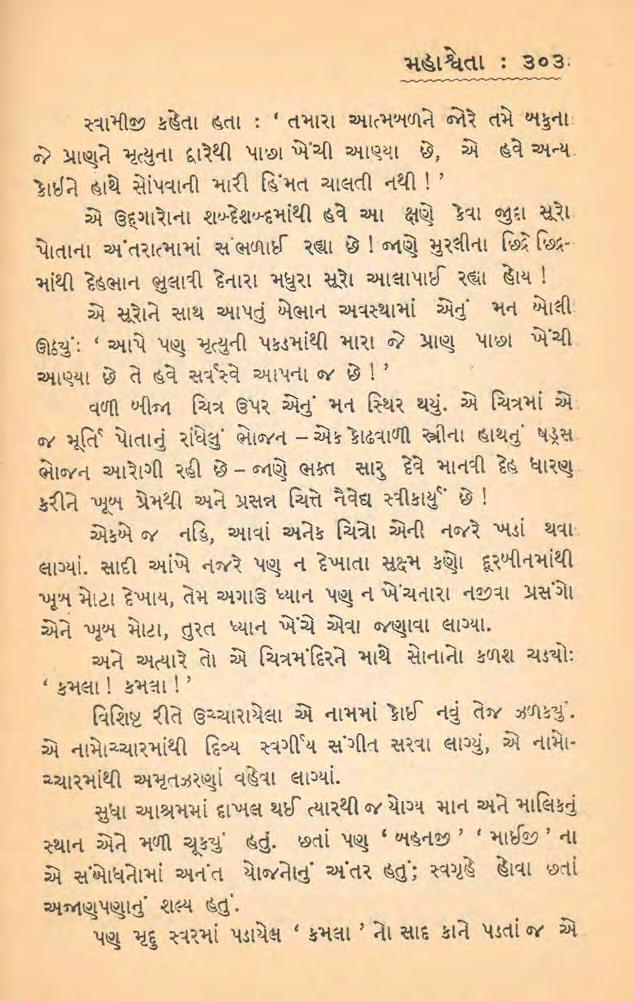 મહાશ્વેતા : ૩૦૩
સ્વામીજી કહેતા હતા : ‘ તમારા આત્મબળને જોરે તમે બકુના
જે પ્રાણને મૃત્યુના દ્વારેથી પાછા ખેંચી આણ્યા છે, એ હવે અન્ય
કોઈને હાથે સોંપવાની મારી હિંમત ચાલતી નથી ! ’
એ ઉદ્ગારોના શબ્દેશબ્દમાંથી હવે આ ક્ષણે કેવા જુદા સૂરો
પોતાના અંતરાત્મામાં સંભળાઈ રહ્યા છે ! જાણે મુરલીના છિદ્રે છિદ્ર-
માંથી દેહભાન ભુલાવી દેનારા મધુરા સૂરો આલાપાઈ રહ્યા હોય !
એ સૂરોને સાથ આપતું બેભાન અવસ્થામાં એનું મન બોલી
ઊઠ્યું: ‘ આપે પણ મૃત્યુની પકડમાંથી મારા જે પ્રાણ પાછા ખેંચી
આણ્યા છે તે હવે સર્વસ્વે આપના જ છે ! ’
વળી બીજા ચિત્ર ઉપર એનું મન સ્થિર થયું. એ ચિત્રમાં એ
જ મૂર્તિ પોતાનું રાંધેલું ભોજન – એક કોઢવાળી સ્ત્રીના હાથનું ષડ્રસ
ભોજન આરોગી રહી છે – જાણે ભક્ત સારુ દેવે માનવી દેહ ધારણ
કરીને ખૂબ પ્રેમથી અને પ્રસન્ન ચિત્તે નૈવેદ્ય સ્વીકાર્યું છે !
એકબે જ નહિ, આવાં અનેક ચિત્રો એની નજરે ખડાં થવા
લાગ્યાં. સાદી આંખે નજરે પણ ન દેખાતા સૂક્ષ્મ કણો દૂરબીનમાંથી
ખૂબ મોટા દેખાય, તેમ અગાઉ ધ્યાન પણ ન ખેંચનારા નજીવા પ્રસંગો
એને ખૂબ મોટા, તુરત ધ્યાન ખેંચે એવા જણાવા લાગ્યા.
અને અત્યારે તો એ ચિત્રમંદિરને માથે સોનાનો કળશ ચડ્યો:
‘ કમલા ! કમલા ! ’
વિશિષ્ટ રીતે ઉચ્ચારાયેલા એ નામમાં કોઈ નવું તેજ ઝળક્યું.
એ નામોચ્ચારમાંથી દિવ્ય સ્વર્ગીય સંગીત સરવા લાગ્યું, એ નામો-
ચ્ચારમાંથી અમૃતઝરણાં વહેવા લાગ્યાં.
સુધા આશ્રમમાં દાખલ થઈ ત્યારથી જ યોગ્ય માન અને માલિકનું
સ્થાન એને મળી ચૂક્યું હતું. છતાં પણ ‘ બહનજી ’ ‘ માઈજી ’ ના
એ સંબોધનોમાં અનંત યોજનોનું અંતર હતું; સ્વગૃહે હોવા છતાં
અજાણપણાનું શલ્ય હતું.
પણ મૃદુ સ્વરમાં પડાયેલ ‘ કમલા ’ નો સાદ કાને પડતાં જ એ